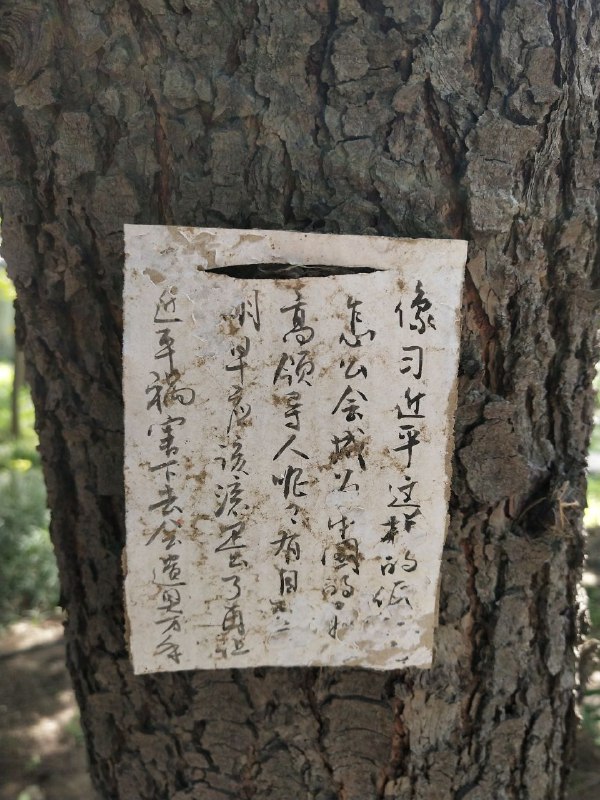 像习近平这样的低
怎么会成为中国的
高领导人呢？有目共
明早应该滚
近平祸害下去会遗臭万年